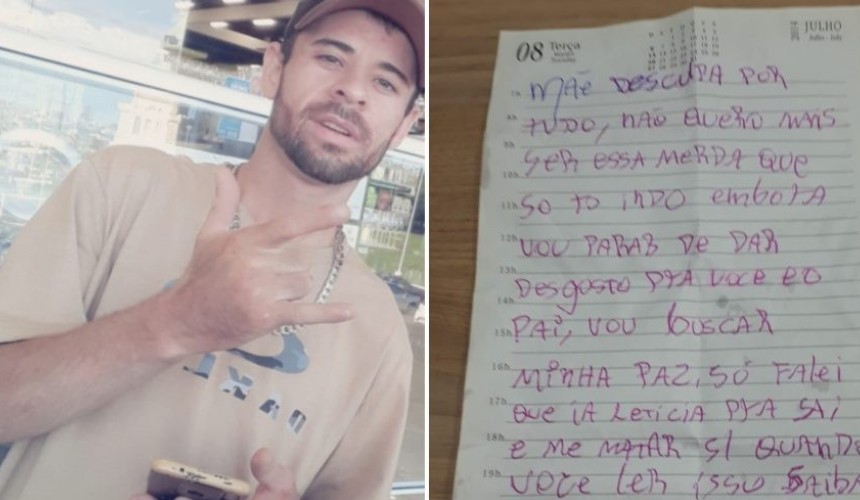 08 Terça
JULHO
MÃE DESCULPA POR
TUDO, NÃO QUERO MAIS
SER ESSA MERDA QUE
SO TO INDO EMBORA
VOU PARAR DE DAR
DESGOSTO PRA VOCE E O
PAI, VOU BUSCAR
MINHA PAZ, SÓ FALEI
QUE IA LETICIA PRA SAI
E ME MATAR SI QUANDO
VOCE LER ISSO SAIBA